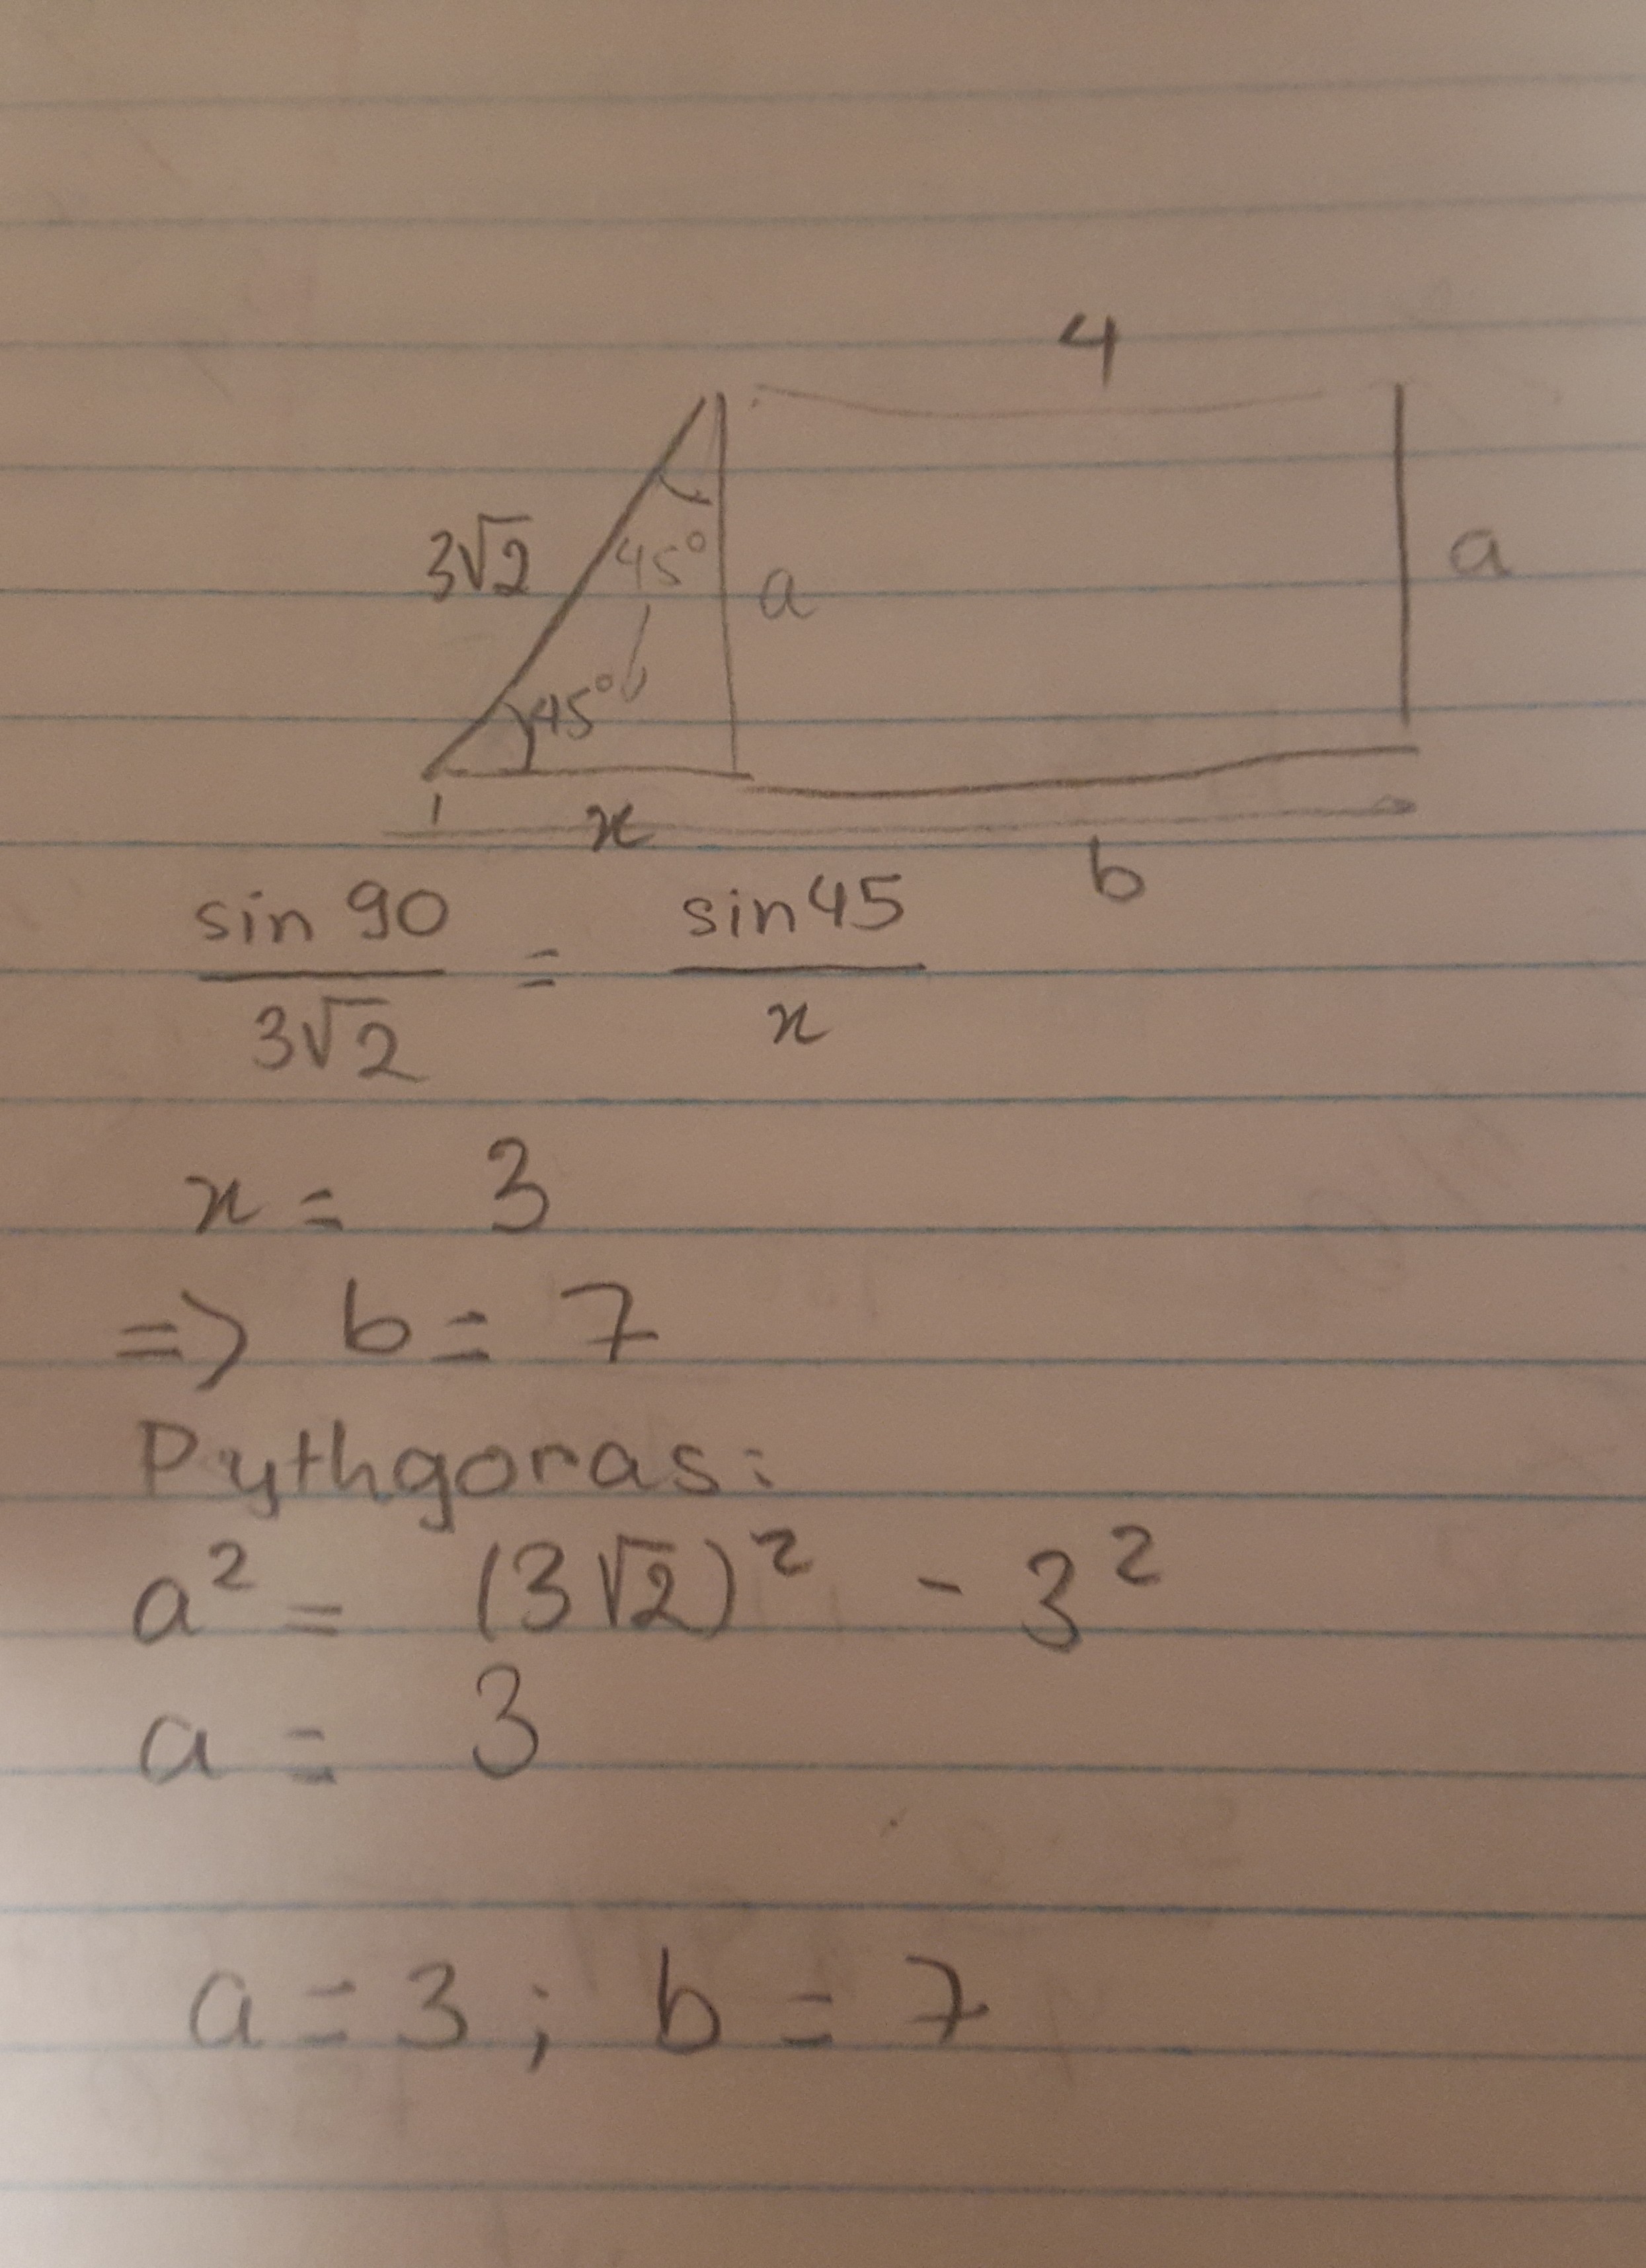 4
3√2
45°
a
a
45°
x
b
sin 90 / 3√2 = sin 45 / x
x = 3
=> b = 7
Pythgoras:
a² = (3√2)² - 3²
a = 3
a = 3 ; b = 7